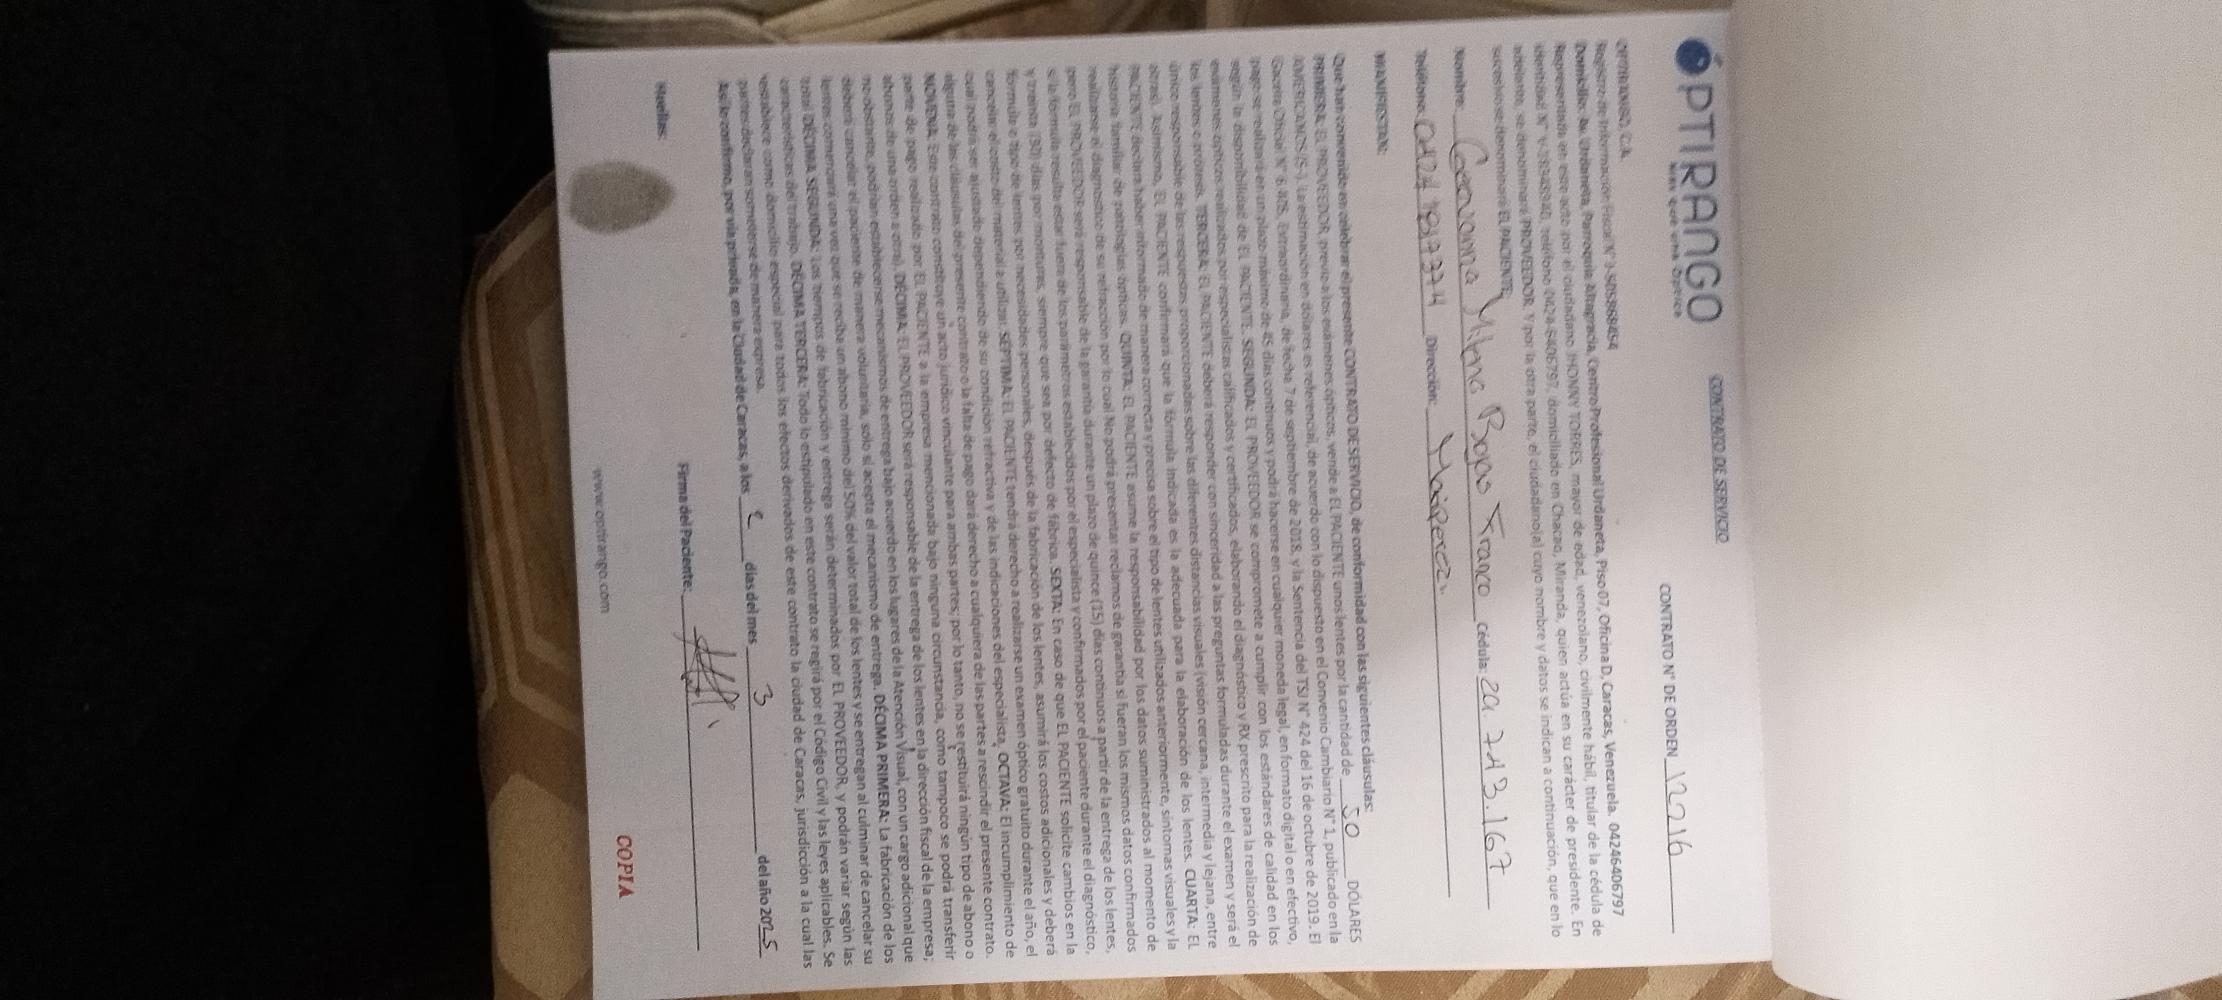 OPTIRANGO
Más que una Óptica
CONTRATO DE SERVICIO
CONTRATO N° DE ORDEN 12216
OPTIRANGO, C.A.
Registro de Información Fiscal N° J-505868454
Domicilio: Av. Urdaneta, Parroquia Altagracia, Centro Profesional Urdaneta, Piso 07, Oficina D, Caracas, Venezuela. 04246406797
Representada en este acto por el ciudadano JHONNY TORRES, mayor de edad, venezolano, civilmente hábil, titular de la cédula de
identidad N° telefono 0424-6406797, domiciliado en Chacao, Miranda, quien actúa en su carácter de presidente. En
adelante, se denominará PROVEEDOR. Y por la otra parte, el ciudadano(a) cuyo nombre y datos se indican a continuación, que en lo
sucesivo se denominará EL PACIENTE:
Nombre: Milena Franco Cédula: 29.743.167
Teléfono: Dirección:
MANIFIESTAN:
Que han convenido en celebrar el presente CONTRATO DE SERVICIO, de conformidad con las siguientes cláusulas:
PRIMERA: EL PROVEEDOR, previo a los exámenes ópticos, vende a EL PACIENTE unos lentes por la cantidad de 50 DÓLARES
AMERICANOS ($-). La estimación en dólares es referencial, de acuerdo con lo dispuesto en el Convenio Cambiario N° 1, publicado en la
Gaceta Oficial N° 6.405, Extraordinaria, de fecha 7 de septiembre de 2018, y la Sentencia del TSJ N° 424 del 16 de octubre de 2019. El
pago se realizará en un plazo máximo de 45 días continuos y podrá hacerse en cualquier moneda legal, en formato digital o en efectivo,
según la disponibilidad de EL PACIENTE. SEGUNDA: EL PROVEEDOR se compromete a cumplir con los estándares de calidad en los
exámenes ópticos realizados por especialistas calificados y certificados, elaborando el diagnóstico y RX prescrito para la realización de
los lentes o prótesis. TERCERA: EL PACIENTE deberá responder con sinceridad a las preguntas formuladas durante el examen y será el
único responsable de las respuestas proporcionadas sobre las diferentes distancias visuales (visión cercana, intermedia y lejana, entre
otras). Asimismo, EL PACIENTE confirmará que la fórmula indicada es la adecuada para la elaboración de los lentes. CUARTA: EL
PACIENTE declara haber informado de manera correcta y precisa sobre el tipo de lentes utilizados anteriormente, síntomas visuales y la
historia familiar de patologías ópticas. QUINTA: EL PACIENTE asume la responsabilidad por los datos suministrados al momento de
realizarse el diagnóstico de su refracción por lo cual No podrá presentar reclamos de garantía si fueran los mismos datos confirmados
pero EL PROVEEDOR será responsable de la garantía durante un plazo de quince (15) días continuos a partir de la entrega de los lentes,
si la fórmula resulta estar fuera de los parámetros establecidos por el especialista y confirmados por el paciente durante el diagnóstico,
y treinta (30) días por monturas, siempre que sea por defecto de fábrica. SEXTA: En caso de que EL PACIENTE solicite cambios en la
fórmula o tipo de lentes por necesidades personales, después de la fabricación de los lentes, asumirá los costos adicionales y deberá
cancelar el costo del material a utilizar. SÉPTIMA: EL PACIENTE tendrá derecho a realizarse un examen óptico gratuito durante el año, el
cual podrá ser ajustado dependiendo de su condición refractiva y de las indicaciones del especialista. OCTAVA: El incumplimiento de
alguna de las cláusulas del presente contrato o la falta de pago dará derecho a cualquiera de las partes a rescindir el presente contrato.
NOVENA: Este contrato constituye un acto jurídico vinculante para ambas partes; por lo tanto, no se restituirá ningún tipo de abono o
parte de pago realizado por EL PACIENTE a la empresa mencionada bajo ninguna circunstancia, como tampoco se podrá transferir
abonos de una orden a otra). DÉCIMA: EL PROVEEDOR será responsable de la entrega de los lentes en la dirección fiscal de la empresa;
no obstante, podrían establecerse mecanismos de entrega bajo acuerdo en los lugares de la Atención Visual, con un cargo adicional que
deberá cancelar el paciente de manera voluntaria, solo si acepta el mecanismo de entrega. DÉCIMA PRIMERA: La fabricación de los
lentes comenzará una vez que se reciba un abono mínimo del 50% del valor total de los lentes y se entregan al culminar de cancelar su
total DÉCIMA SEGUNDA: Los tiempos de fabricación y entrega serán determinados por EL PROVEEDOR, y podrán variar según las
características del trabajo. DÉCIMA TERCERA: Todo lo estipulado en este contrato se regirá por el Código Civil y las leyes aplicables. Se
establece como domicilio especial para todos los efectos derivados de este contrato la ciudad de Caracas, jurisdicción a la cual las
partes declaran someterse de manera expresa.
Así lo confirmo, por vía privada, en la Ciudad de Caracas, a los 2 días del mes 3 del año 2025
Huellas:
Firma del Paciente:
www.optirango.com
COPIA